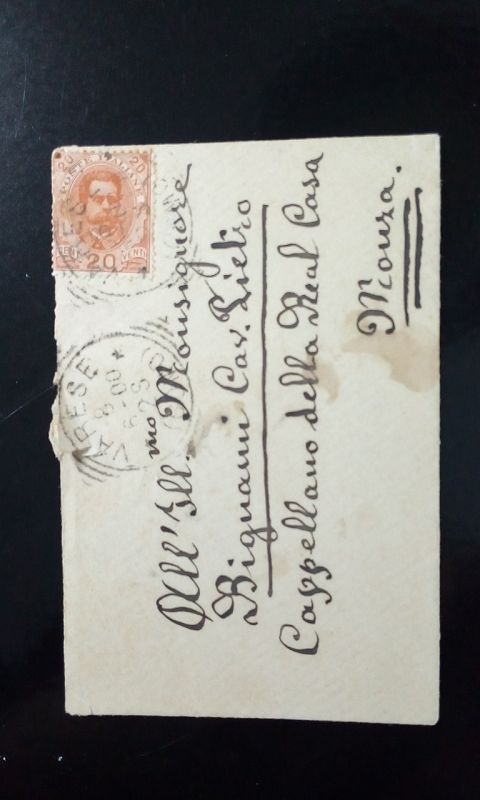 20 20
POSTE ITALIANE
CENT 20 CENTI
VARESE
8-00
All'Ill.mo Monsignore
Bignami Cav. Pietro
Cappellano della Real Casa
Monza.